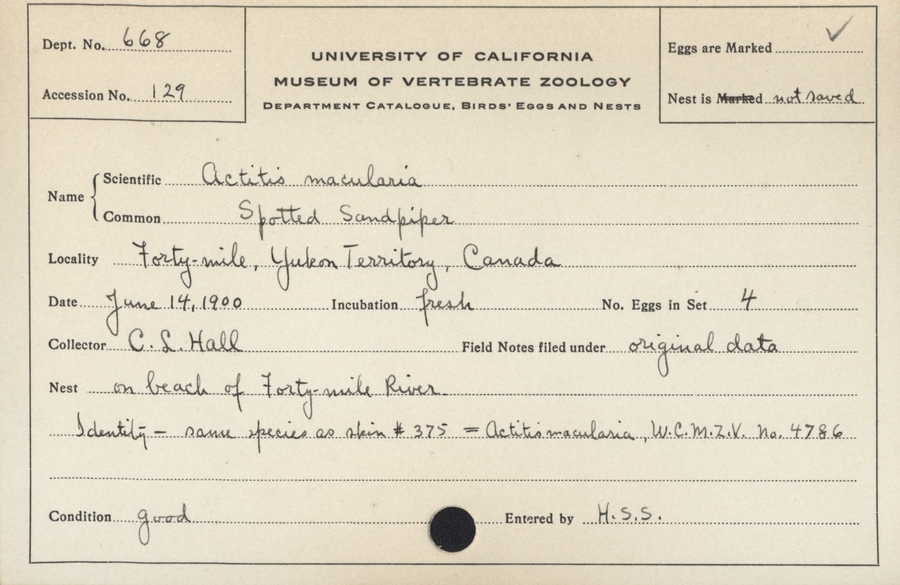 Dept. No. 668
Accession No. 129
UNIVERSITY OF CALIFORNIA
MUSEUM OF VERTEBRATE ZOOLOGY
DEPARTMENT CATALOGUE, BIRDS' EGGS AND NESTS
Eggs are Marked ✓
Nest is Marked not saved
Name
Scientific Actitis macularia
Common Spotted Sandpiper
Locality Forty-mile, Yukon Territory, Canada
Date June 14, 1900 Incubation fresh No. Eggs in Set 4
Collector C. L. Hall Field Notes filed under original data
Nest on beach of Forty-mile River.
Identity - same species as skin # 375 = Actitis macularia, W.C.M.Z.V. No. 4786
Condition good Entered by H.S.S.